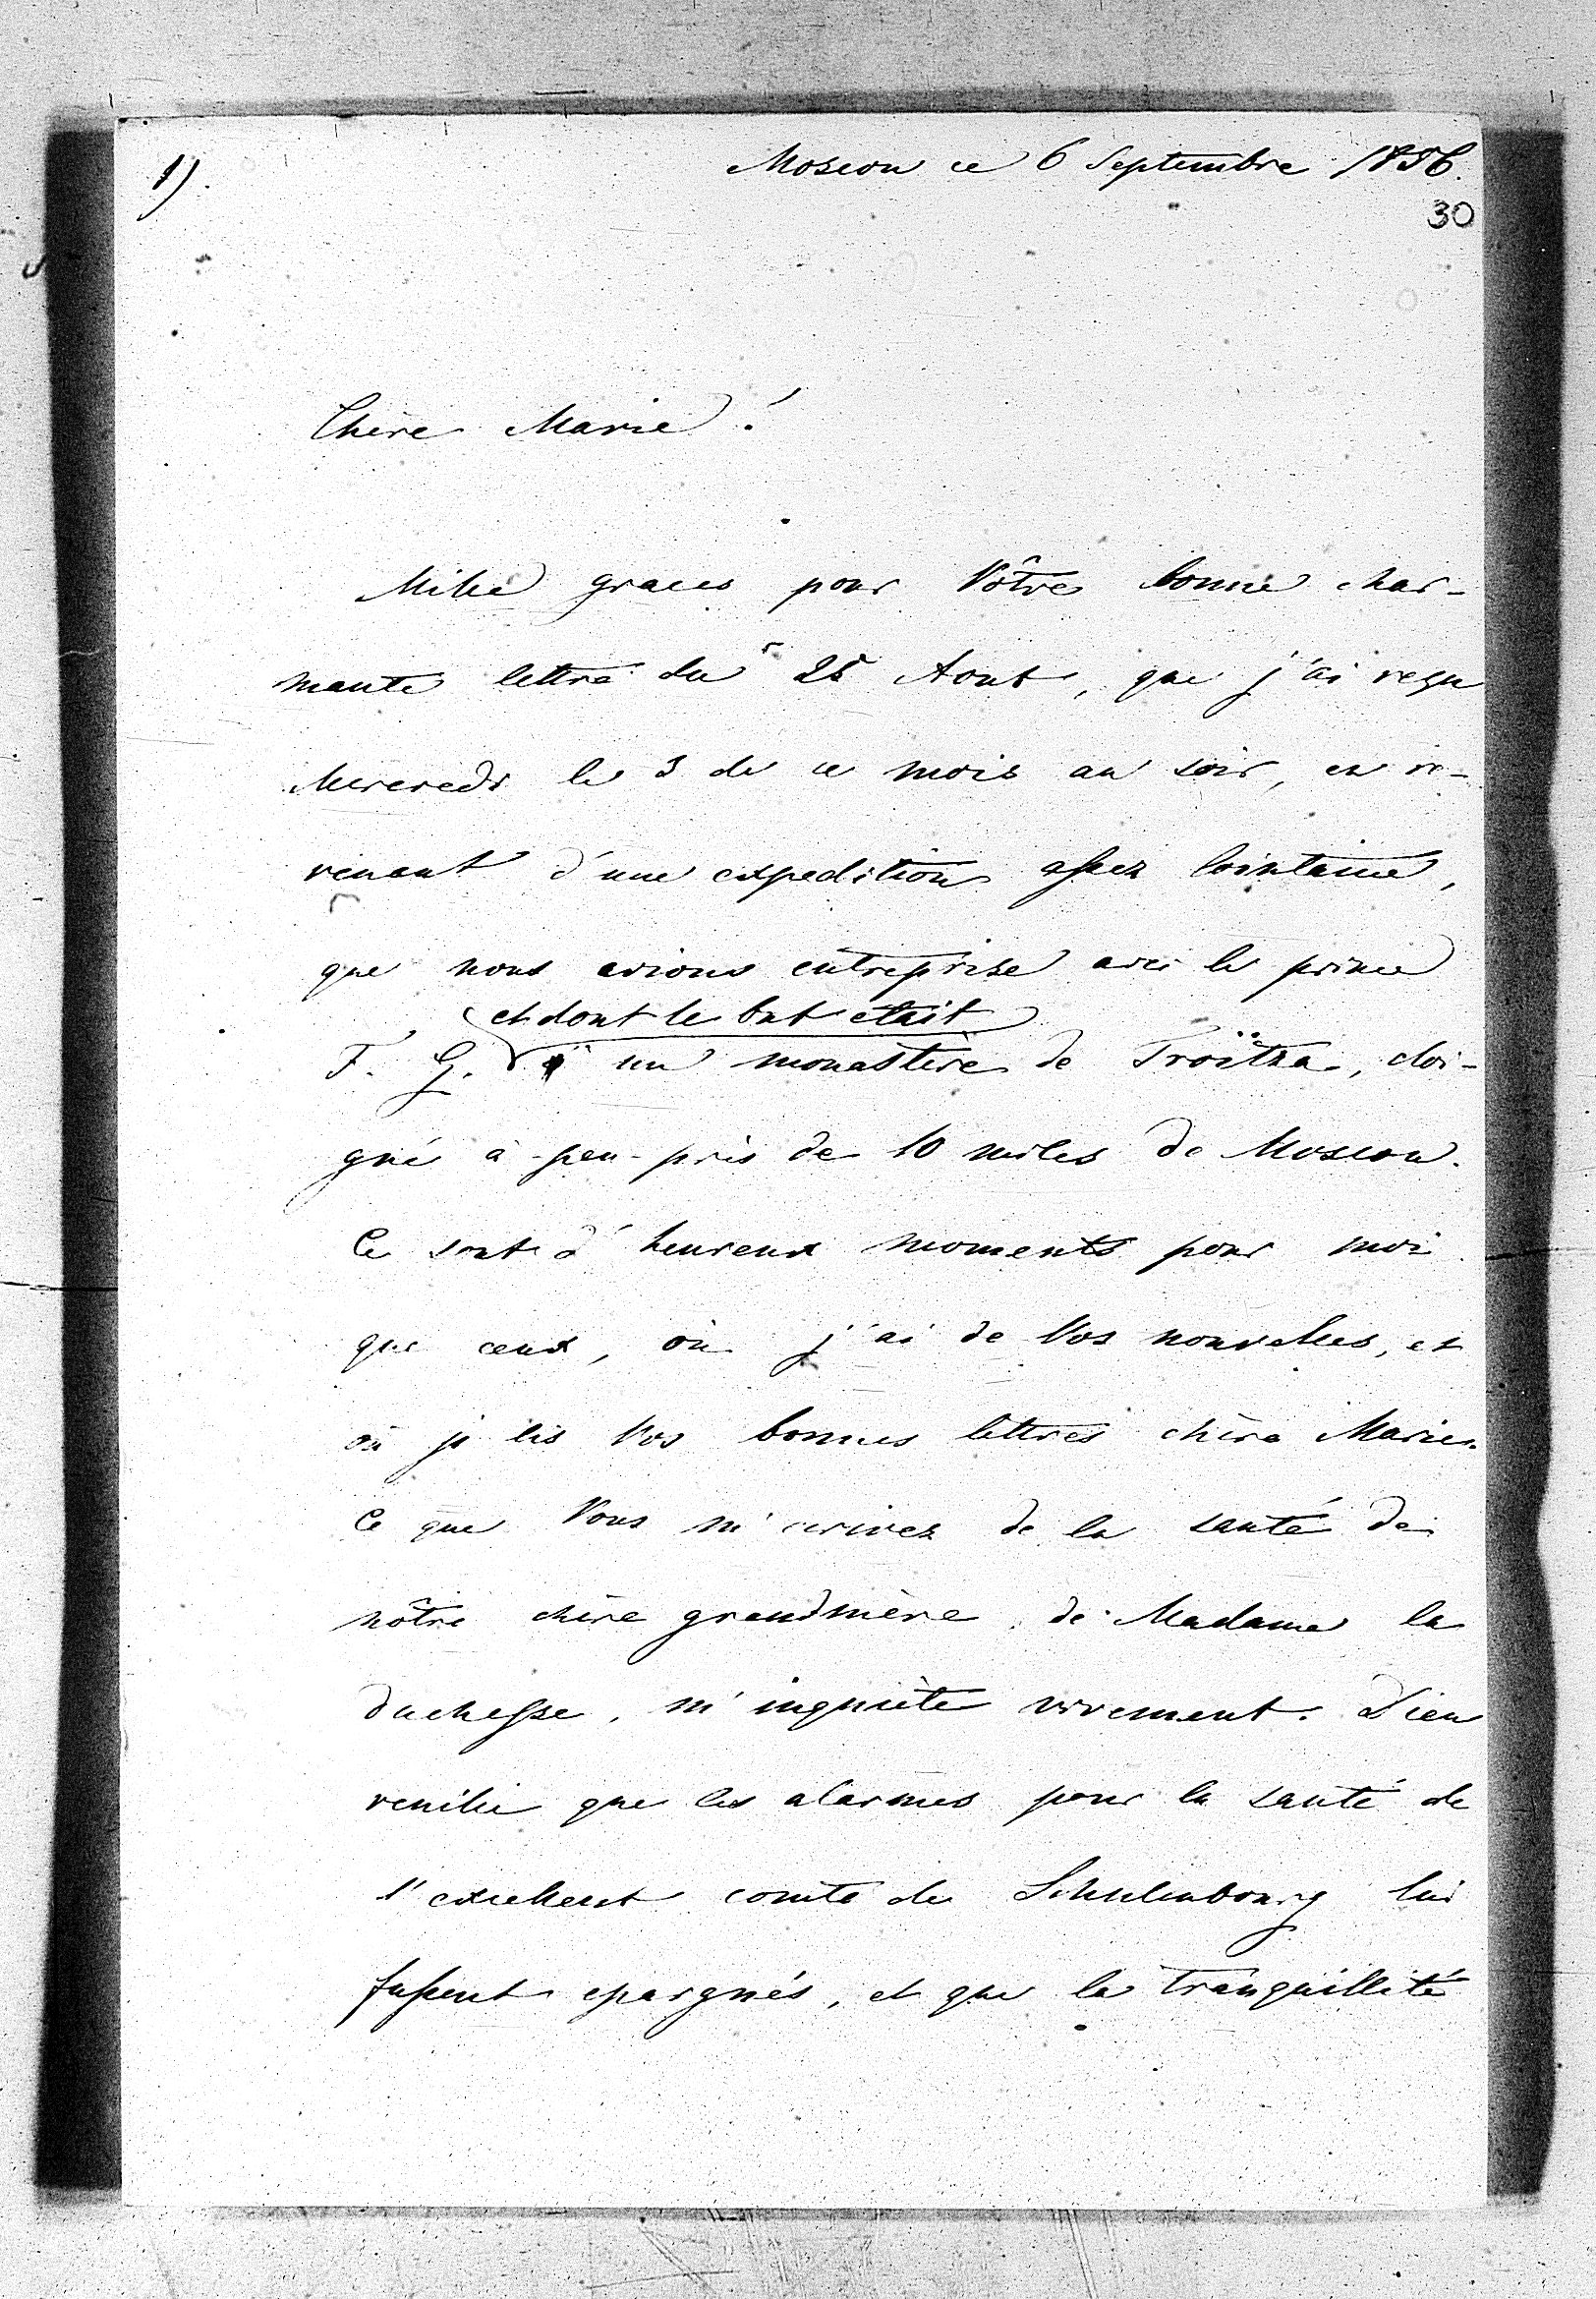 1)
Moscou ce 6 Septembre 1856.
30
Chère Marie!
Mille graces pour Vôtre bonne char-
mante lettre du 25 Aout, que j'ai reçu
Mercredi le 3 de ce mois au soir, en re-
venant d'une expedition assez lointaine,
que nous avions entreprise avec le prince
et dont le but etait
F. G. un monastère de Troïtza, eloi-
gné à-peu-près de 10 miles de Moscou.
Ce sont d'heureux moments pour moi
que ceux, où j'ai de Vos nouvelles, et
où je lis Vos bonnes lettres chère Marie.
Ce que Vous m'ecrivez de la santé de
nôtre chère grandmère, de Madame la
duchesse, m'inquiète vivement. Dieu
veuille que les alarmes pour la santé de
l'excellent comte de Schulenbourg lui
fussent epargnés, et que la tranquillité